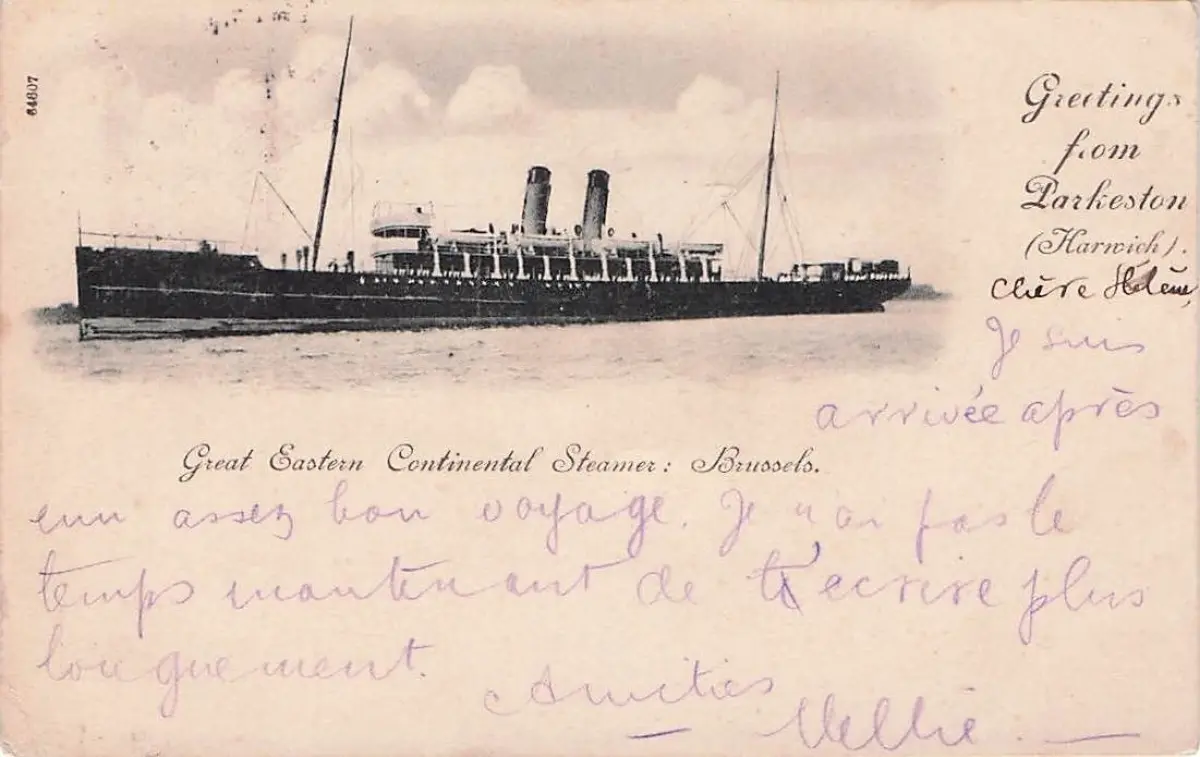 64607
Greetings
from
Parkeston
(Harwich).
Chère Hélène,
Je suis
arrivée après
Great Eastern Continental Steamer: Brussels.
enn assez bon voyage. Je n'ai pas le
temps maintenant de t'ecrire plus
longuement.
Amitiés
Nellie.